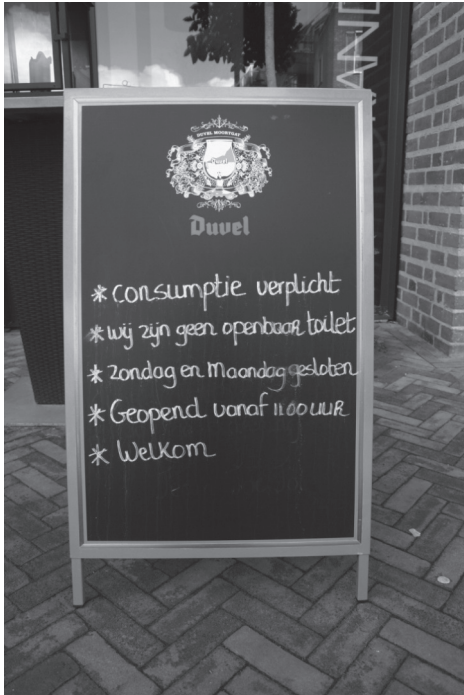 DUVEL MOORTGAT
Duvel
Duvel
* Consumptie verplicht
* wij zijn geen openbaar toilet
* zondag en maandag gesloten
* Geopend vanaf 11.00 uur
* Welkom